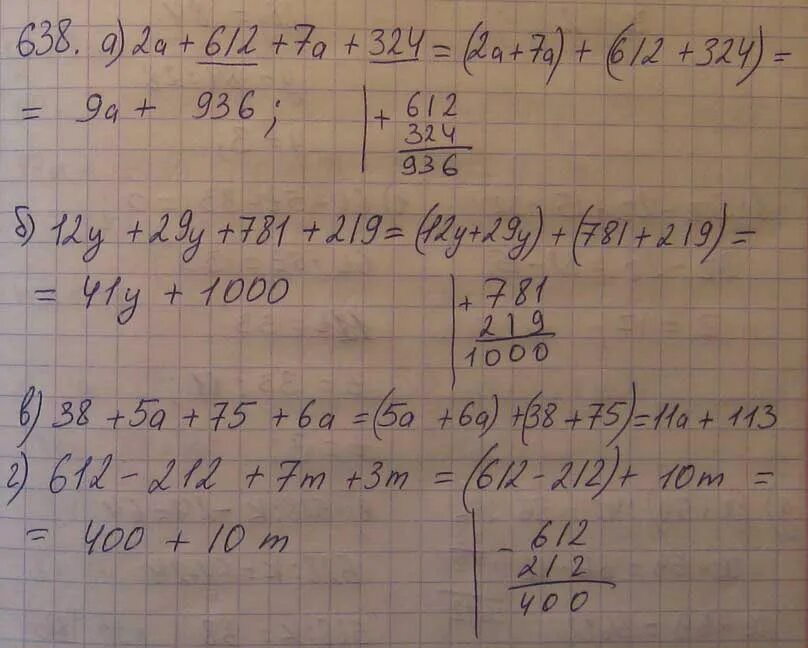 638. а) 2a + 612 + 7a + 324 = (2a+7a) + (612 + 324) =
= 9a + 936 ;
+ 612
324
936
б) 12y + 29y + 781 + 219 = (12y+29y) + (781 + 219) =
= 41y + 1000
+ 781
219
1000
в) 38 + 5a + 75 + 6a = (5a + 6a) + (38 + 75) = 11a + 113
г) 612 - 212 + 7m + 3m = (612 - 212) + 10m =
= 400 + 10 m
- 612
212
400